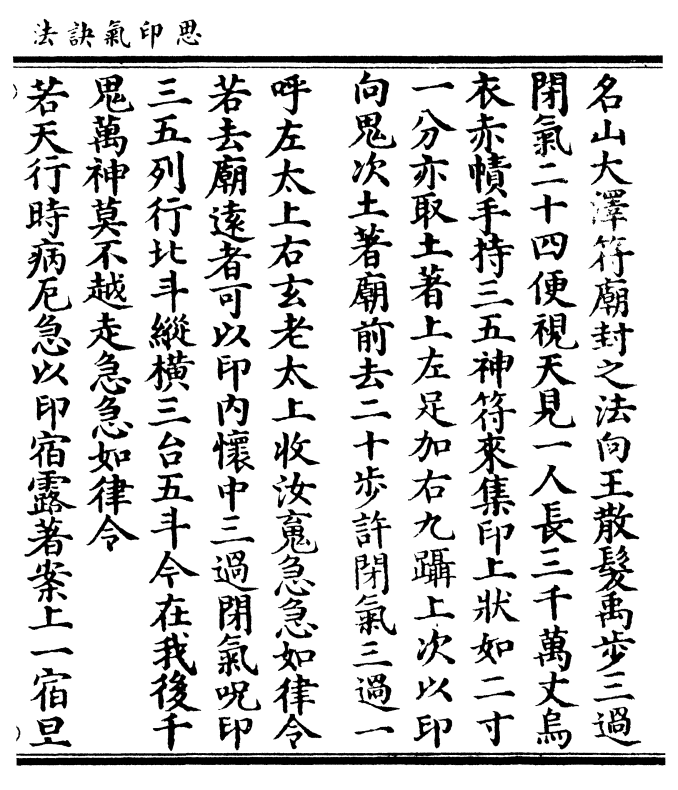 思印氣訣法
名山大澤符廟封之法向王散髮禹步三過
閉氣二十四便視天見一人長三千萬丈烏
衣赤幘手持三五神符來集印上狀如二寸
一分亦取土著上左足加右九躡上次以印
向鬼次土著廟前去二十步許閉氣三過一
呼左太上右玄老太上收汝䰟急急如律令
若去廟遠者可以印內懷中三過閉氣呪印
三五列行北斗縱橫三台五斗今在我後千
鬼萬神莫不越走急急如律令
若天行時病厄急以印宿露著案上一宿旦